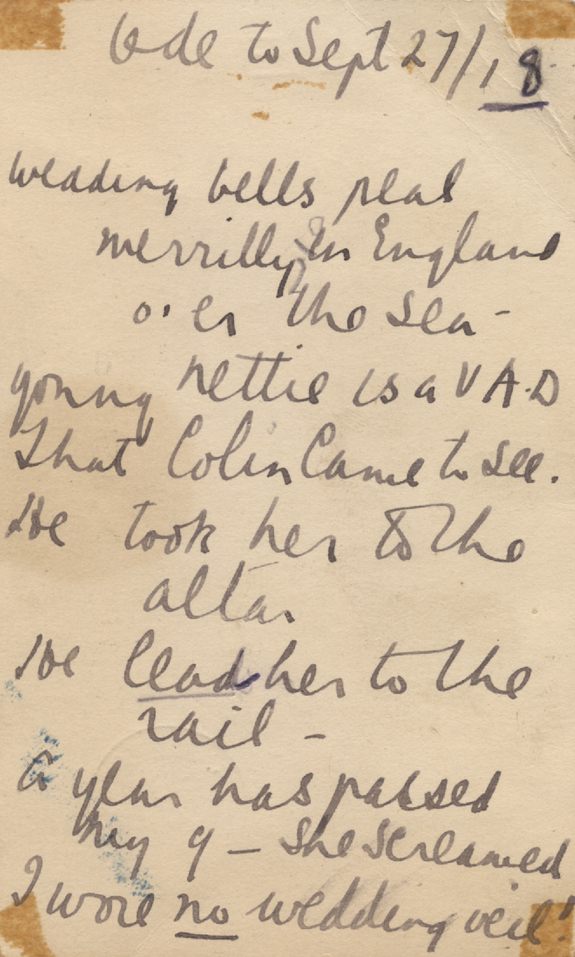 Ode to Sept 27/18
wedding bells peal
merrilly In England
o'er the sea -
young Nettie is a V A.D
That Colin Came to see.
He took her to the
altar
He lead her to the
rail -
A year has passed
My G - She Screamed
I wore no wedding veil!